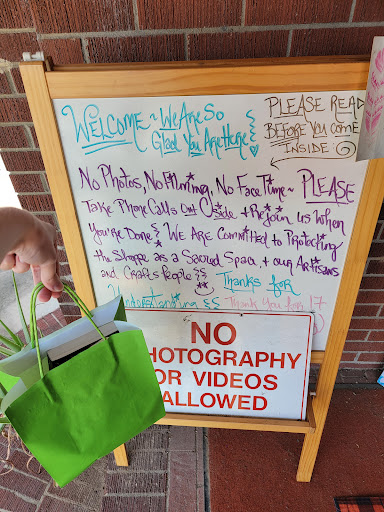 Welcome ~ We Are So
Glad You Are Here
PLEASE READ
BEFORE YOU COME
INSIDE:
No Photos, No Filming, No Face Time ~ PLEASE
Take Phone Calls Outside + Rejoin Us When
You're Done We Are Committed to Protecting
the Shoppe as a Sacred Space + our Artisans
and Crafts People
Thanks for
Understanding
Thank You for 17
NO
PHOTOGRAPHY
OR VIDEOS
ALLOWED